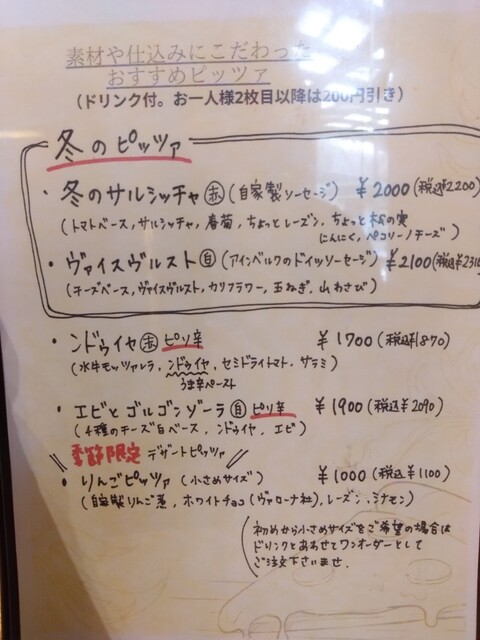 素材や仕込みにこだわった
おすすめピッツァ
(ドリンク付。お一人様2枚目以降は200円引き)
冬のピッツァ
・冬のサルシッチャ 赤 (自家製ソーセージ) ¥2000 (税込¥2200)
(トマトベース、サルシッチャ、春菊、ちょっとレーズン、ちょっと松の実
にんにく、ペコリーノチーズ)
・ヴァイスヴルスト 白 (アインベルクのドイツソーセージ) ¥2100 (税込¥2310
(チーズベース、ヴァイスヴルスト、カリフラワー、玉ねぎ、山わさび)
・ンドゥイヤ 赤 ピリ辛 ¥1700 (税込¥1870)
(水牛モッツァレラ、ンドゥイヤ、セミドライトマト、サラミ)
うま辛ペースト
・エビとゴルゴンゾーラ 白 ピリ辛 ¥1900 (税込¥2090)
(4種のチーズ白ベース、ンドゥイヤ、エビ)
季節限定 デザートピッツァ
・りんごピッツァ (小さめサイズ) ¥1000 (税込¥1100)
(自家製りんご煮、ホワイトチョコ(ヴァローナ社)、レーズン、シナモン)
初めから小さめサイズをご希望の場合は
ドリンクとあわせてワンオーダーとして
ご注文下さいませ.